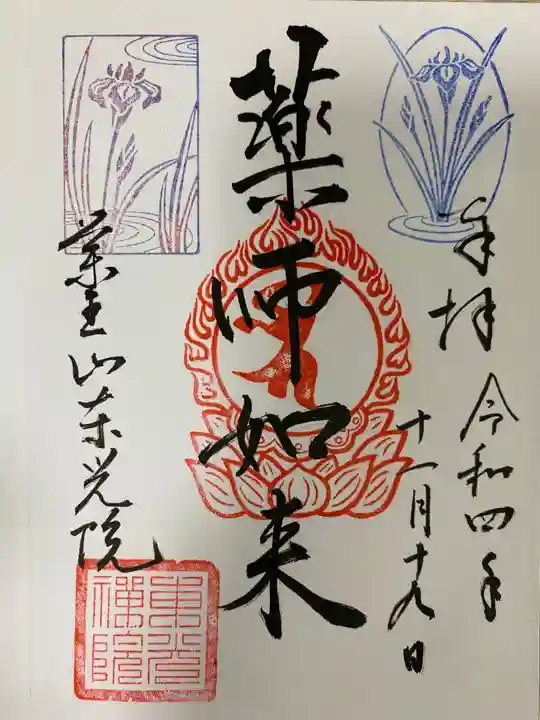 奉拝
令和四年
十一月十九日
薬師如来
薬王山東光院
東光禅院